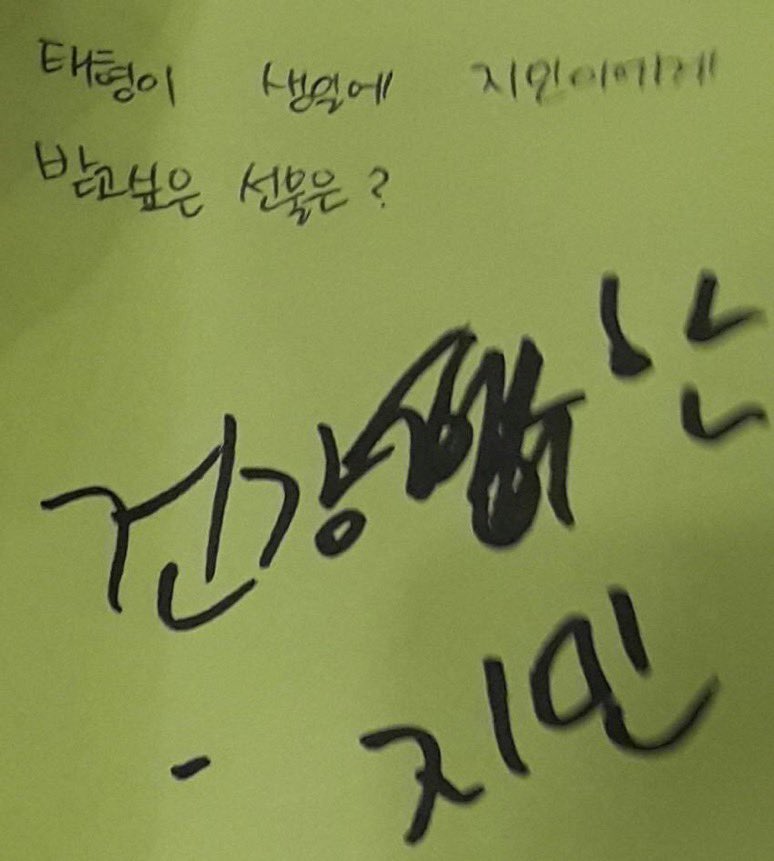 태형이 생일에 지민이에게
받고싶은 선물은?
건강
- 지민